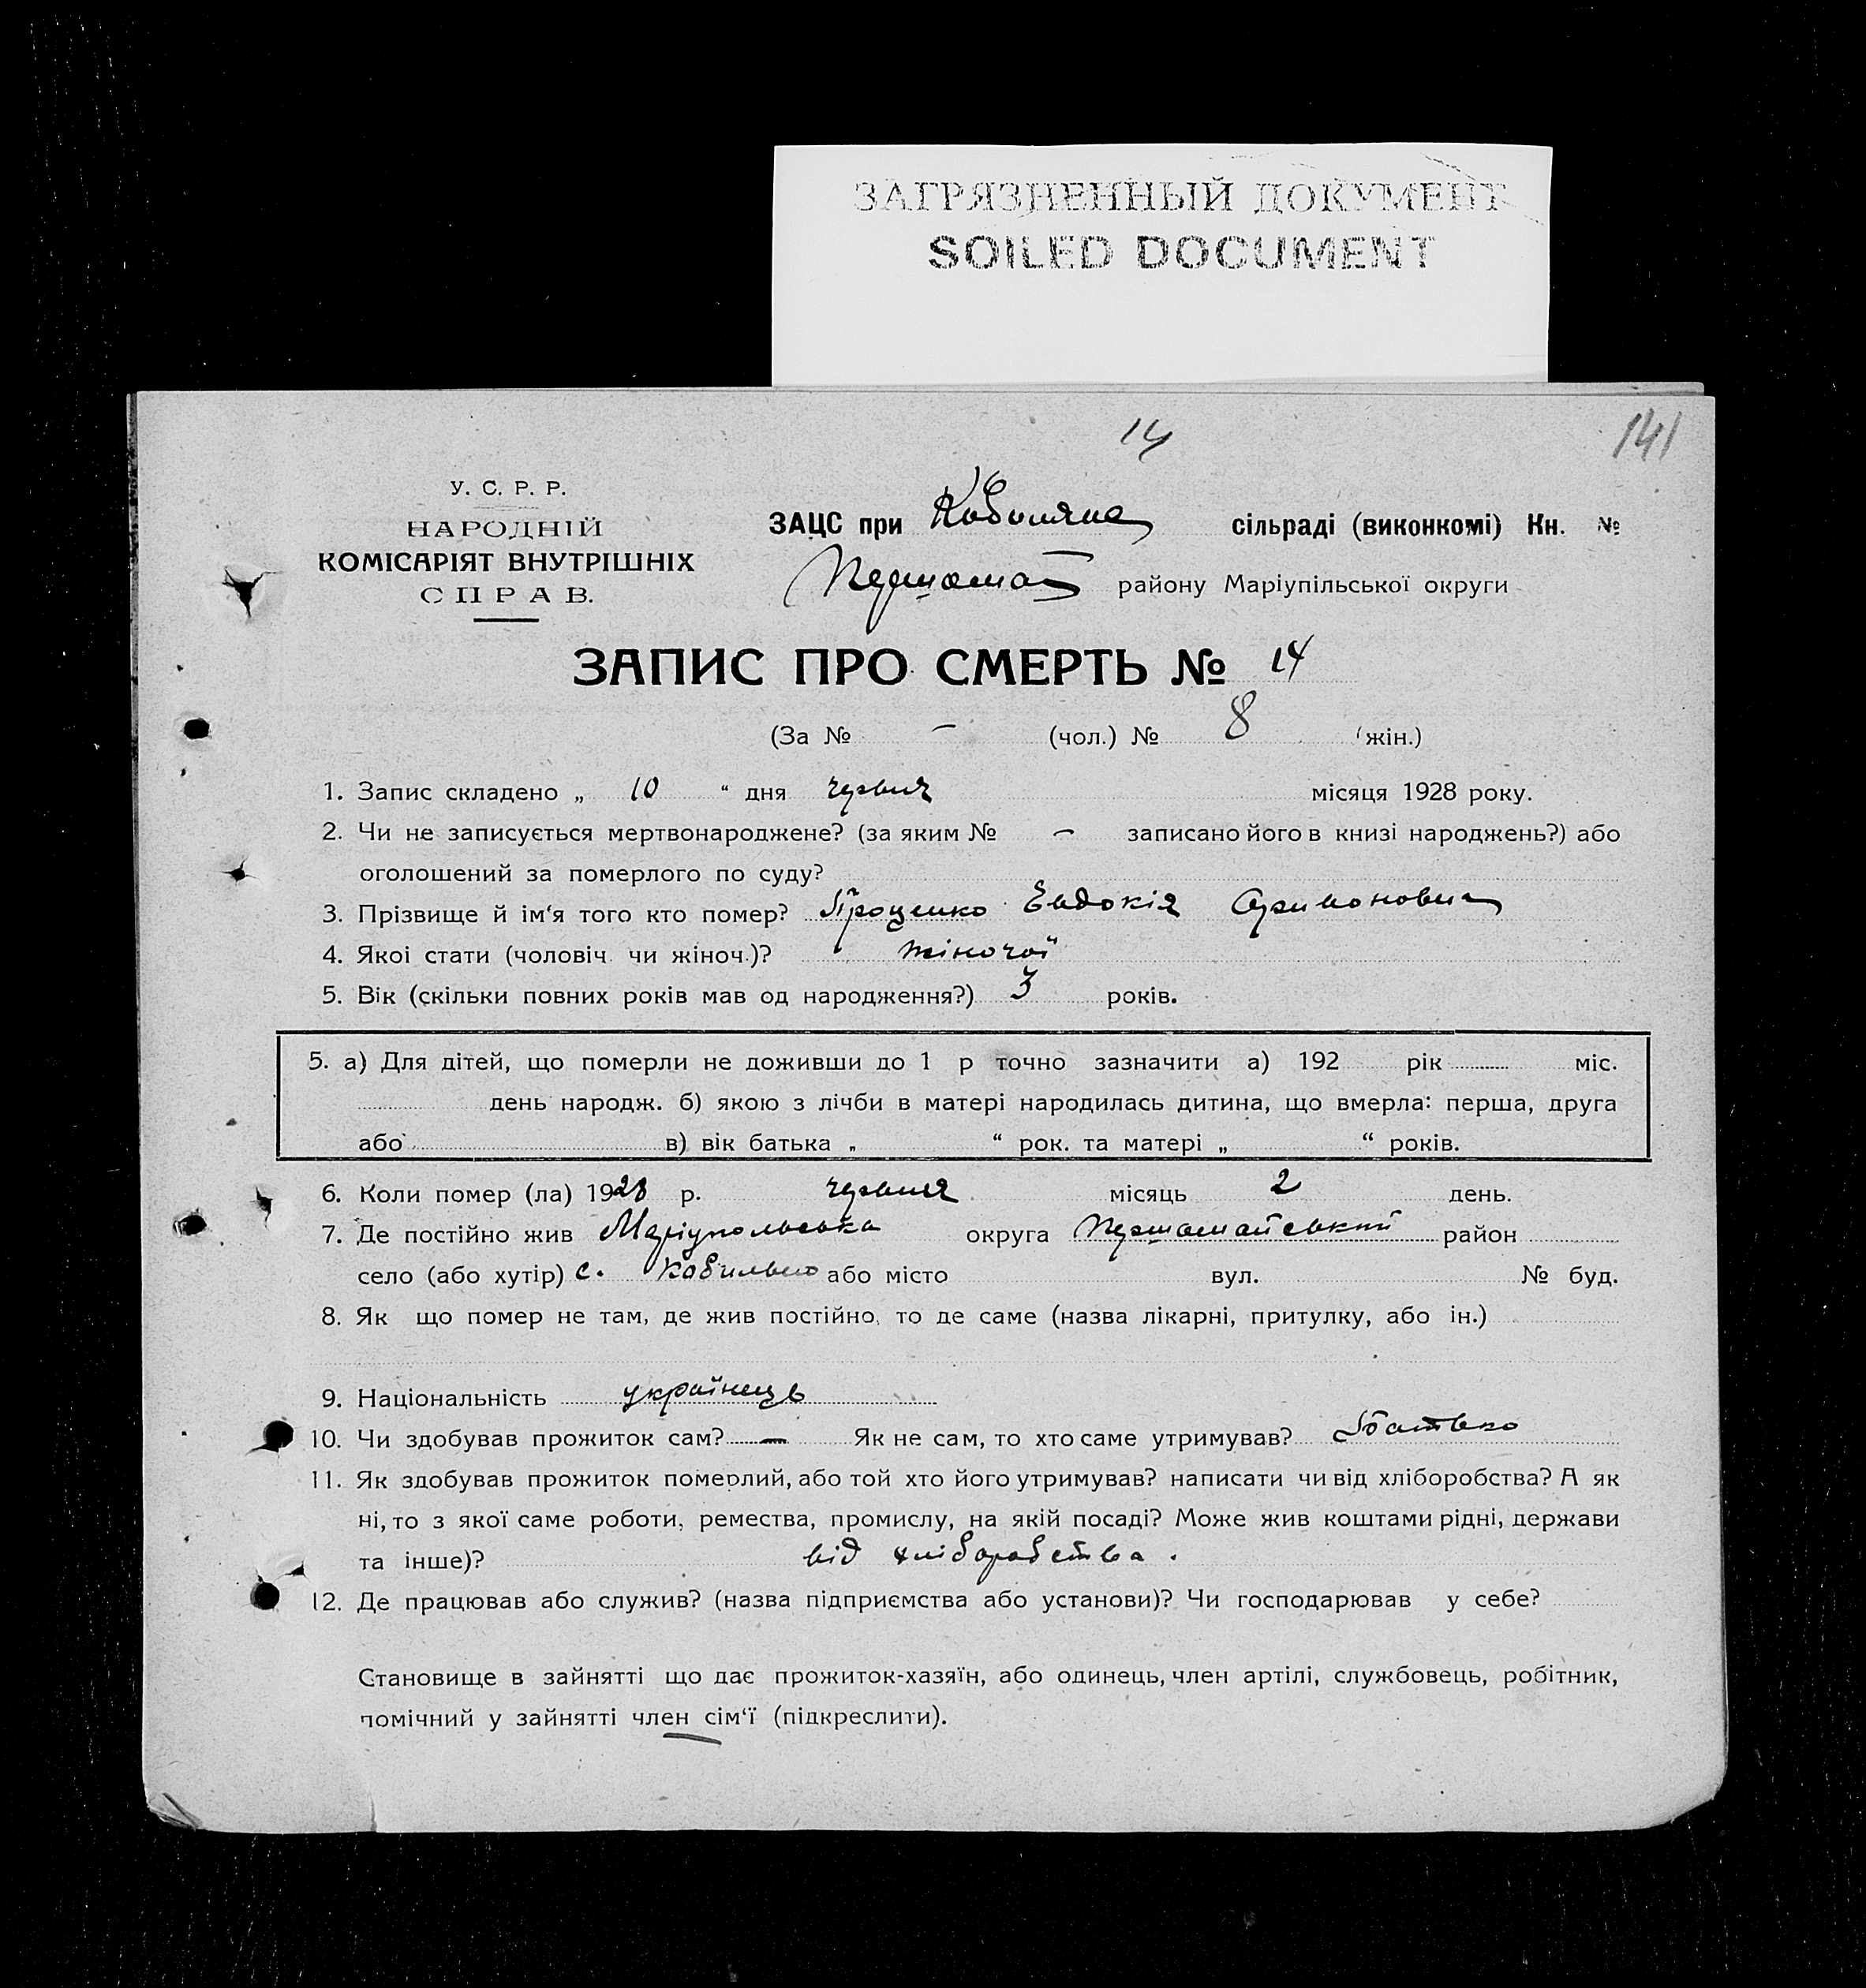 ЗАГРЯЗНЕННЫЙ ДОКУМЕНТ
SOILED DOCUMENT
14
141
У. С. Р. Р.
НАРОДНІЙ
КОМІСАРІЯТ ВНУТРІШНІХ
СПРАВ.
ЗАЦС при сільраді (виконкомі) Кн. №
району Маріупільської округи
ЗАПИС ПРО СМЕРТЬ № 14
(За № – (чол.) № 8 (жін.)
1. Запис складено „ 10 “ дня червня місяця 1928 року.
2. Чи не записується мертвонароджене? (за яким № – записано його в книзі народжень?) або
оголошений за померлого по суду?
3. Прізвище й ім‘я того кто помер? Проценко Евдокія
4. Якоі стати (чоловіч. чи жіноч.)? жіночої
5. Вік (скільки повних років мав од народження?) 3 років.
5. а) Для дітей, що померли не доживши до 1 р точно зазначити а) 192 рік міс.
день народж. б) якою з лічби в матері народилась дитина, що вмерла: перша, друга
або в) вік батька „ “ рок. та матері „ “ років.
6. Коли помер (ла) 1928 р. червня місяць 2 день.
7. Де постійно жив Маріупольська округа Першомайський район
село (або хутір) с. або місто вул. № буд.
8. Як що помер не там, де жив постійно, то де саме (назва лікарні, притулку, або ін.)
9. Національність українець
10. Чи здобував прожиток сам? – Як не сам, то хто саме утримував? Батько
11. Як здобував прожиток померлий, або той хто його утримував? написати чи від хліборобства? А як
ні, то з якої саме роботи, ремества, промислу, на якій посаді? Може жив коштами рідні, держави
та інше)? від хліборобства.
12. Де працював або служив? (назва підприємства або установи)? Чи господарював у себе?
Становище в зайнятті що дає прожиток-хазяїн, або одинець, член артілі, службовець, робітник,
помічний у зайнятті член сім‘ї (підкреслити).